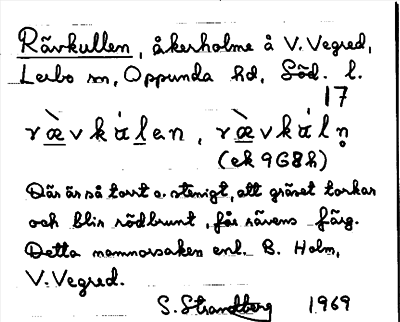 Rävkullen, åkerholme å V. Vegred,
Lerbo sn, Oppunda hd, Söd. l.
17
ræ̀vkálan, ræ̀vkáln̥
(ek 9G8h)
Där är så torrt o. stenigt, att gräset torkar
och blir rödbrunt, får rävens färg.
Detta namnorsaken enl. B. Holm,
V. Vegred.
S. Strandberg 1969